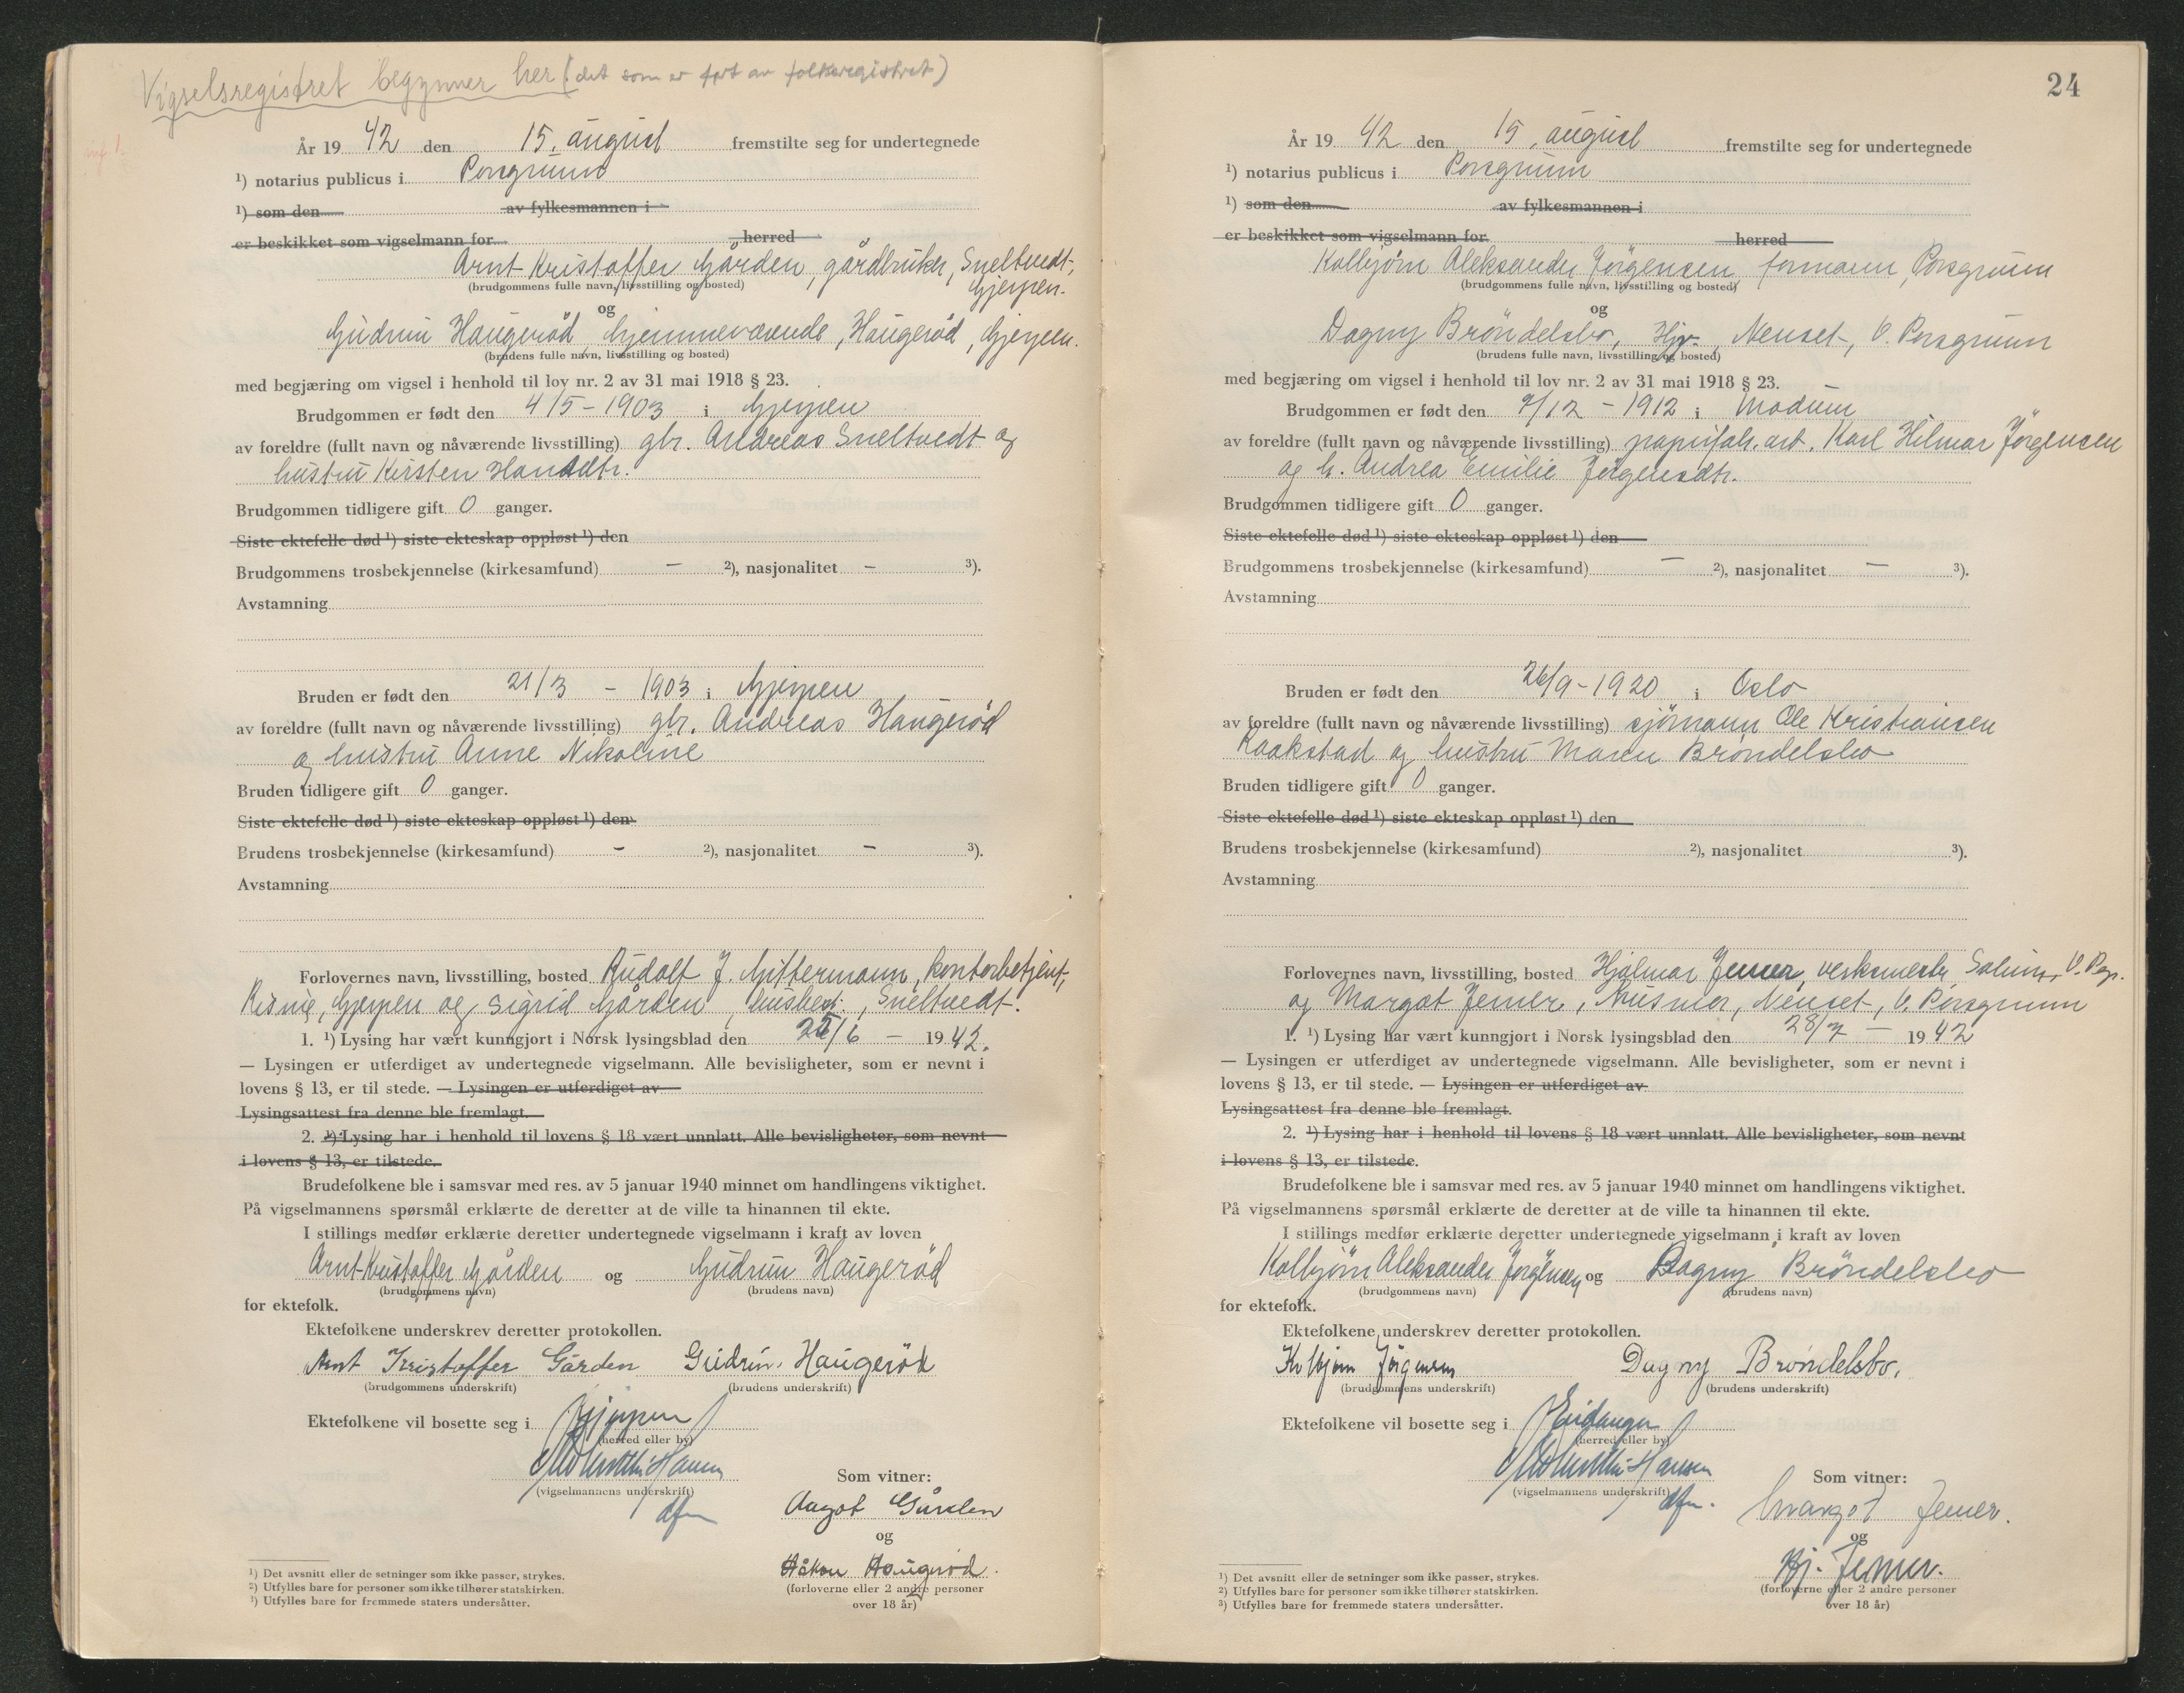 Vigselsregistret begynner her (det som er ført av folkeregistret)
År 1942 den 15. august fremstilte seg for undertegnede
¹) notarius publicus i Porsgrunn
¹) som den av fylkesmannen i
er beskikket som vigselmann for herred
Arnt Kristoffer Gården, gårdbruker, Sneltvedt,
Gjerpen.
(brudgommens fulle navn, livsstilling og bosted)
og
Gudrun Haugerød, hjemmeværende, Haugerød, Gjerpen.
(brudens fulle navn, livsstilling og bosted)
med begjæring om vigsel i henhold til lov nr. 2 av 31 mai 1918 § 23.
Brudgommen er født den 4/5 - 1903 i Gjerpen
av foreldre (fullt navn og nåværende livsstilling) gbr. Andreas Sneltvedt og
hustru Kirsten Hansdtr.
Brudgommen tidligere gift 0 ganger.
Siste ektefelle død ¹) siste ekteskap oppløst ¹) den
Brudgommens trosbekjennelse (kirkesamfund) - ²), nasjonalitet - ³).
Avstamning
Bruden er født den 21/3 - 1903 i Gjerpen
av foreldre (fullt navn og nåværende livsstilling) gbr. Andreas Haugerød
og hustru Anne Nikoline
Bruden tidligere gift 0 ganger.
Siste ektefelle død ¹) siste ekteskap oppløst ¹) den
Brudens trosbekjennelse (kirkesamfund) - ²), nasjonalitet - ³).
Avstamning
Forlovernes navn, livsstilling, bosted Rudolf J. Gittermann, kontorbetjent,
Gjerpen og Sigrid Gården, husbest., Sneltvedt.
1. ¹) Lysing har vært kunngjort i Norsk lysingsblad den 25/6 - 1942.
— Lysingen er utferdiget av undertegnede vigselmann. Alle bevisligheter, som er nevnt i
lovens § 13, er til stede. — Lysingen er utferdiget av
Lysingsattest fra denne ble fremlagt.
2. ¹) Lysing har i henhold til lovens § 18 vært unnlatt. Alle bevisligheter, som nevnt
i lovens § 13, er tilstede.
Brudefolkene ble i samsvar med res. av 5 januar 1940 minnet om handlingens viktighet.
På vigselmannens spørsmål erklærte de deretter at de ville ta hinannen til ekte.
I stillings medfør erklærte deretter undertegnede vigselmann i kraft av loven
Arnt Kristoffer Gården og Gudrun Haugerød
(brudgommens navn) (brudens navn)
for ektefolk.
Ektefolkene underskrev deretter protokollen.
Arnt Kristoffer Gården Gudrun Haugerød
(brudgommens underskrift) (brudens underskrift)
Ektefolkene vil bosette seg i Gjerpen
(herred eller by)
(vigselmannens underskrift)
dfm
Som vitner:
Aagot Gården
og
Håkon Haugerød.
(forloverne eller 2 andre personer
over 18 år)
¹) Det avsnitt eller de setninger som ikke passer, strykes.
²) Utfylles bare for personer som ikke tilhører statskirken.
³) Utfylles bare for fremmede staters undersåtter.
24
År 1942 den 15. august fremstilte seg for undertegnede
¹) notarius publicus i Porsgrunn
¹) som den av fylkesmannen i
er beskikket som vigselmann for herred
Kolbjørn Aleksander Jørgensen, formann, Porsgrunn
(brudgommens fulle navn, livsstilling og bosted)
og
Dagny Brøndelsbo, Hjv., Nenset, V. Porsgrunn
(brudens fulle navn, livsstilling og bosted)
med begjæring om vigsel i henhold til lov nr. 2 av 31 mai 1918 § 23.
Brudgommen er født den 9/12 - 1912 i Modum
av foreldre (fullt navn og nåværende livsstilling) papirfab. arb. Karl Hilmar Jørgensen
og h. Andrea Emilie Jørgensdtr.
Brudgommen tidligere gift 0 ganger.
Siste ektefelle død ¹) siste ekteskap oppløst ¹) den
Brudgommens trosbekjennelse (kirkesamfund) - ²), nasjonalitet - ³).
Avstamning
Bruden er født den 26/9 - 1920 i Oslo
av foreldre (fullt navn og nåværende livsstilling) sjömann Ole Kristiansen
Raakstad og hustru Maren Brøndelsbo
Bruden tidligere gift 0 ganger.
Siste ektefelle død ¹) siste ekteskap oppløst ¹) den
Brudens trosbekjennelse (kirkesamfund) ²), nasjonalitet ³).
Avstamning
Forlovernes navn, livsstilling, bosted Hjalmar Jemer, verksmester, V. Pgr.
og Margot Jemer, husmor, Nenset, V. Porsgrunn
1. ¹) Lysing har vært kunngjort i Norsk lysingsblad den 28/7 - 1942
— Lysingen er utferdiget av undertegnede vigselmann. Alle bevisligheter, som er nevnt i
lovens § 13, er til stede. — Lysingen er utferdiget av
Lysingsattest fra denne ble fremlagt.
2. ¹) Lysing har i henhold til lovens § 18 vært unnlatt. Alle bevisligheter, som nevnt
i lovens § 13, er tilstede.
Brudefolkene ble i samsvar med res. av 5 januar 1940 minnet om handlingens viktighet.
På vigselmannens spørsmål erklærte de deretter at de ville ta hinannen til ekte.
I stillings medfør erklærte deretter undertegnede vigselmann i kraft av loven
Kolbjørn Aleksander Jørgensen og Dagny Brøndelsbo
(brudgommens navn) (brudens navn)
for ektefolk.
Ektefolkene underskrev deretter protokollen.
Kolbjørn Jørgensen Dagny Brøndelsbo.
(brudgommens underskrift) (brudens underskrift)
Ektefolkene vil bosette seg i Eidanger
(herred eller by)
(vigselmannens underskrift)
dfm.
Som vitner:
Margot Jemer.
og
Hj. Jemer.
(forloverne eller 2 andre personer
over 18 år)
¹) Det avsnitt eller de setninger som ikke passer, strykes.
²) Utfylles bare for personer som ikke tilhører statskirken.
³) Utfylles bare for fremmede staters undersåtter.